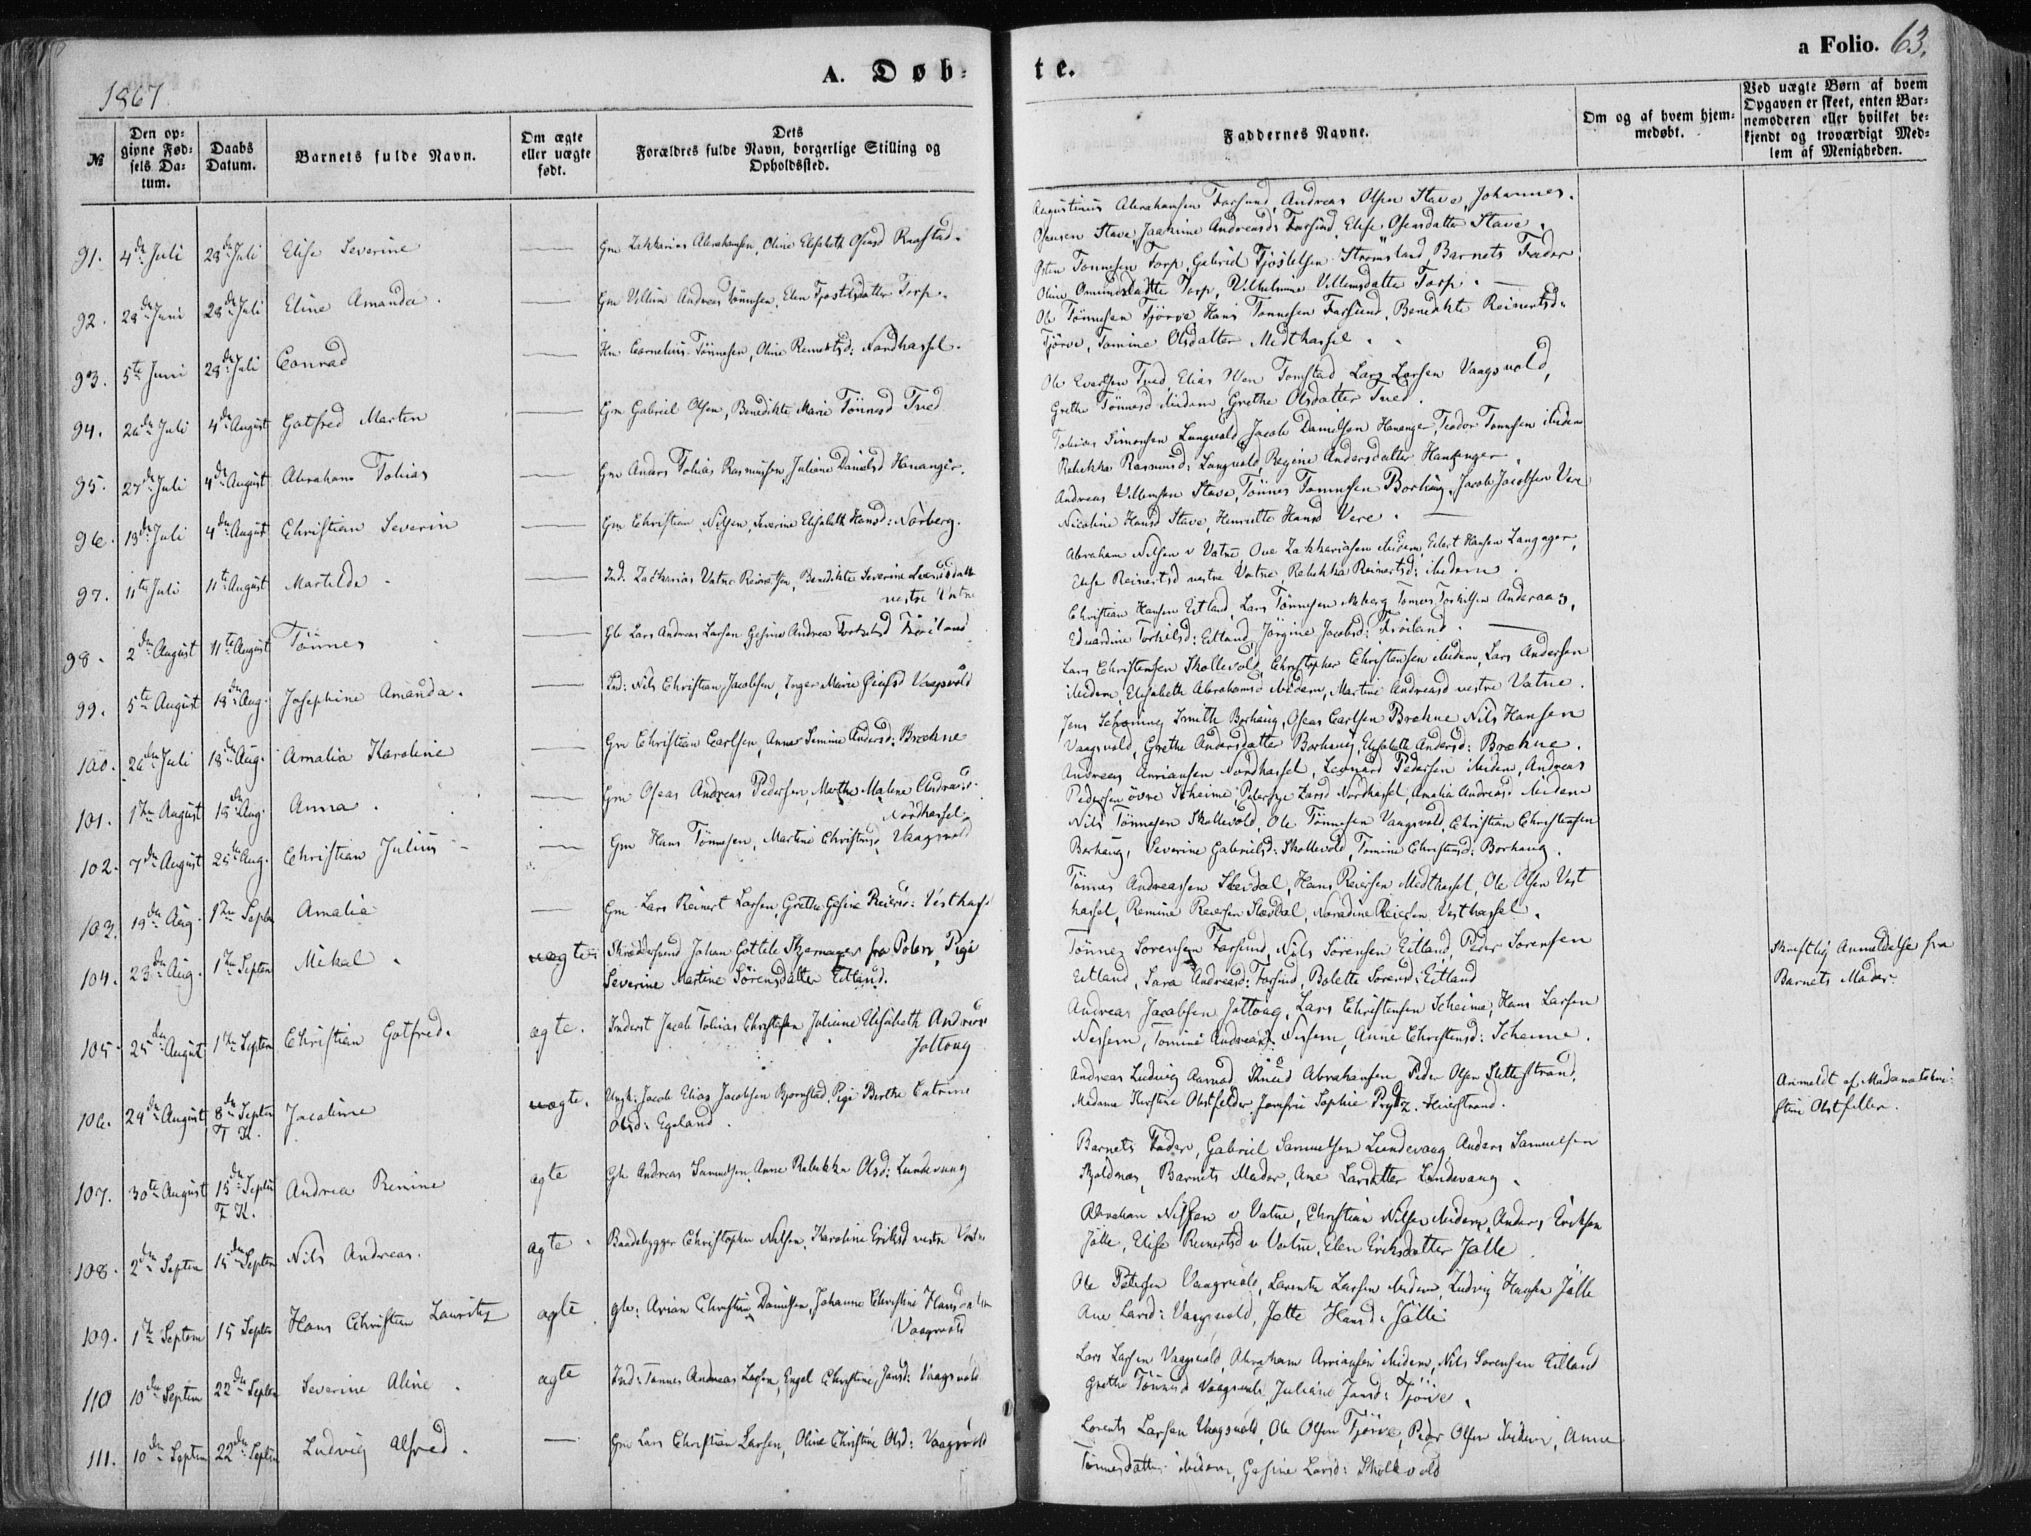 1867
A. Døb=
te.
a Folio. 63.
№
Den op=
givne Fød=
sels Da=
tum.
Daabs
Datum.
Barnets fulde Navn.
Om ægte
eller uægte
født.
Dets
Forældres fulde Navn, borgerlige Stilling og
Opholdssted.
Faddernes Navne.
Om og af hvem hjem=
medøbt.
Ved uægte Børn af hvem
Opgaven er skeet, enten Bar=
nemoderen eller hvilket be=
kjendt og troværdigt Med=
lem af Menigheden.
91. 4de Juli 28de Juli Elise Severine — Gm Zakharias Abrahamsen, Oline Elisabeth Osensd
Augustinus Abrahamsen Farsund, Andreas Olsen Stave, Johannes
Osensen Stave, Jaakime Andreasd: Farsund, Elise Osensdatter Stave.
92. 28de Juni 28de Juli Eline Amanda. — Gm Villum Andreas Tönnesen, Elen Tjostelsdatter Torp.
Osten Tönnesen Torp, Gabriel Tjostelsen Strömsland, Barnets Fader
Oline Omundsdatter Torp, Vilhelmine Villumsdatter Torp. —
93. 5te Juni 28de Juli Conrad — Cornelius Tönnesen, Oline Reinertsd: Nordhassel.
Ole Tönnesen Tjörve, Hans Tönnesen Farsund, Benedikte Reinertsd:
Tjörve, Tomine Olsdatter Midthassel.
94. 26de Juli 4de August Gotfred Martin — Gm Gabriel Olsen, Benedikte Marie Tönnesd Tued
Ole Evertsen Tued, Elias Tomstad, Lars Larsen Vaagsvold,
Grethe Tönnesd ibidem Grethe Olsdatter Tued.
95. 27de Juli 4de August Abraham Tobias — Gm Anders Tobias Rasmussen, Juliane Danielsd Hananger.
Tobias Simonsen Lungvold, Jacob Danielsen Hananger, Teodor Tönnesen ibidem
Rebekka Rasmusd: Lungvold, Regine Andersdatter Hananger.
96. 13de Juli 4de August Christian Severin — Gm Christian Nilsen, Severine Elisabeth Hansd: Nörberg.
Andreas Villumsen Stave, Tönnes Tönnesen Borhaug, Jacob Jacobsen Vere
Nicoline Hansd Stave, Henriette Hansd Vere. —
97. 11te Juli 11te August Martilde. — Ind. Zacharias Vatne Reiersen, Benedikte Severine
vestre Vatne
Abraham Nilsen v Vatne Ove Zakhariasen ibidem, Eilert Hansen Langager,
Elise Reinertsd vestre Vatne, Rebekka Reinertsd: ibidem.
98. 2den August 11te August Tönnes — Gb Lars Andreas Larsen, Gesine Andrea Torkelsd Fröiland
Christian Hansen Eitland, Lars Tönnesen Meberg, Tönnes Torkelsen Anderaas,
Eduardine Torkilsd: Eitland, Jörgine Jacobsd: Fröiland. —
99. 5te August 18de Aug. Josephine Amanda. — Ind: Nils Christian Jacobsen, Inger Marie Vaagsvold
Lars Christensen Skollevold, Christopher Christensen ibidem, Lars Andersen
ibidem, Elisabeth Abrahamsd ibidem, Martine Andreasd vestre Vatne.
100. 26de Juli 18de Aug. Amalia Karoline — Gm Christian Carlsen, Anne Semine Andersd: Brekne
Jens Schöning Smith Borhaug, Oseas Carlsen Brekne Nils Hansen
Vaagsvold, Grethe Andersdatter Borhaug, Elisabeth Andersd: Brekne.
101. 1ste August 18de Aug. Anna. — Gm Oseas Andreas Pedersen, Marthe Malene Andreasd:
Nordhassel.
Andreas Arriansen Nordhassel, Leonard Pedersen ibidem, Andreas
Pedersen övre Scheime, Larsd Nordhassel, Amalia Andreasd ibidem
102. 7de August 25te Aug. Christian Julius — Gm Hans Tönnesen, Martine Christensd, Vaagsvold
Nils Tönnesen Skollevold, Ole Tönnesen Vaagsvold, Christian Christensen
Borhaug, Severine Gabrielsd: Skollevold, Tomine Christensd: Borhaug.
103. 19de Aug. 1ste Septbr Amalia — Gm Lars Reinert Larsen, Grethe Gesine Reiersd: Vesthassel
Tönnes Andreassen Slevdal, Hans Reiersen Midthassel, Ole Olsen Vest
hassel, Remine Reiersen Slevdal, Noradine Reiersen Vesthassel.
104. 23de Aug. 1ste Septem Mikal. uægte Skræddersvend Johan Gottlib fra Polen, Pige
Severine Martine Sörensdatter Eitland.
Tönnes Sorensen Farsund, Nils Sörensen Eitland, Peder Sorensen
Eitland, Sara Andreasd: Farsund, Bolette Sorensd: Eitland
Skriftlig Anmeldelse fra
Barnets Moder.
105. 25de August 1ste Septem Christian Gotfred. ægte. Inderst Jacob Tobias Christensen Juliane Elisabeth Andreasd
Joltoug
Andreas Jacobsen Joltoug, Lars Christensen Scheime, Hans Larsen
Nesheim, Tomine Andreasd: Nesheim, Anne Christensd: Scheime.
106. 29de August 8de Septem
T. K.
Jacobine uægte. Ungk: Jacob Elias Jacobsen Bjornstad, Pige Birthe Catrine
Olsd: Egeland.
Andreas Ludvig Aamod, Knud Abrahamsen Peder Olsen Slettestrand,
Madame Kerstine Obstfelder, Jomfru Sophie Prytz.
Anmeldt af Madam
Obstfelder.
107. 30te August 15de Septem
T. K.
Andrea Renine ægte Gb Andreas Samuelsen, Anne Rebekka Olsd: Lundevaag
Barnets Fader, Gabriel Samuelsen Lundevaag, Anders Samuelsen
Skoldnes, Barnets Moder, Ane Larsdatter Lundevaag.
108. 2den Septem 15de Septem Nils Andreas. ægte. Baadebygger Christopher Nilsen, Karoline Eriksd vestre Vatne
Abraham Nilsen v Vatne, Christian Nilsen ibidem, Anders Eriksen
Jölle, Elise Reinertsd v Vatne, Elen Eriksdatter Jølle
109. 1ste Septem 15 Septbr Hans Christian Lauritz ægte gbr: Arian Christian Danielsen, Johanne Christine Hansdatter
Vaagsvold
Ole Petersen Vaagsvold, Lorentz Larsen ibidem, Ludvig Hansen Jölle
Ane Larsd: Vaagsvold, Jette Hansd: Jölle
110 10de Septem 22de Septem Severine Aline. ægte Ind: Tönnes Andreas Larsen, Engel Christine Jansd: Vaagsvold
Lars Larsen Vaagsvold, Abraham Arriansen ibidem, Nils Sorensen Eitland
Grethe Tönnesd Vaagsvold, Juliane Jansd: Tjörve.
111. 10de Septem 22de Septem Ludvig Alfred. — Gm Lars Christian Larsen, Oline Christine Olsd: Vaagsvold
Lorents Larsen Vaagsvold, Ole Olsen Tjörve, Peder Olsen ibidem, Anne
Tönnesdatter ibidem, Gesine Larsd: Skollevold